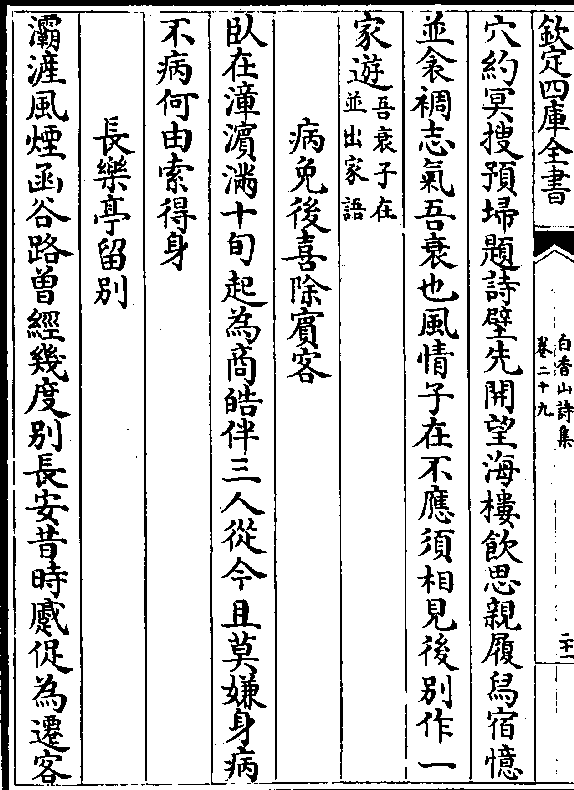 欽定四庫全書
白香山詩集
卷二十九
二十一
穴約冥搜預埽題詩壁先開望海樓飲思親履舄宿憶
並衾裯志氣吾衰也風情子在不應須相見後別作一
家遊吾衰子在
並出家語
病免後喜除賓客
臥在漳濱滿十旬起為商皓伴三人從今且莫嫌身病
不病何由索得身
長樂亭留別
灞滻風煙函谷路曾經幾度別長安昔時蹙促為遷客